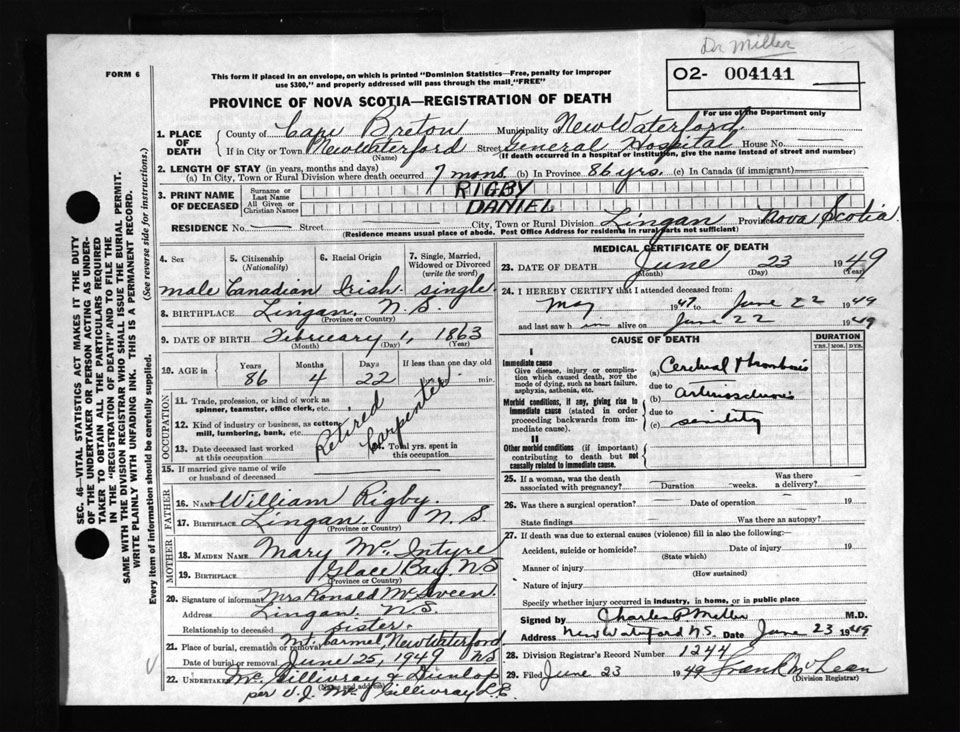 Dr Miller
FORM 6
This form if placed in an envelope, on which is printed "Dominion Statistics—Free, penalty for improper
use $300," and properly addressed will pass through the mail "FREE"
O2- 004141
For use of the Department only
PROVINCE OF NOVA SCOTIA—REGISTRATION OF DEATH
SEC. 46—VITAL STATISTICS ACT MAKES IT THE DUTY
OF THE UNDERTAKER OR PERSON ACTING AS UNDER-
TAKER TO OBTAIN ALL THE PARTICULARS REQUIRED
IN THE "REGISTRATION OF DEATH" AND TO FILE THE
SAME WITH THE DIVISION REGISTRAR WHO SHALL ISSUE THE BURIAL PERMIT.
WRITE PLAINLY WITH UNFADING INK. THIS IS A PERMANENT RECORD.
Every item of information should be carefully supplied. (See reverse side for instructions.)
1. PLACE OF DEATH
County of Cape Breton Municipality of New Waterford
If in City or Town New Waterford Street General Hospital House No.
(Name) (If death occurred in a hospital or institution, give the name instead of street and number)
2. LENGTH OF STAY (in years, months and days)
(a) In City, Town or Rural Division where death occurred 7 mons. (b) In Province 86 yrs. (c) In Canada (if immigrant)
3. PRINT NAME OF DECEASED
Surname or Last Name RIGBY
All Given or Christian Names DANIEL
RESIDENCE No. — Street City, Town or Rural Division Lingan Province Nova Scotia
(Residence means usual place of abode. Post Office Address for residents in rural parts not sufficient)
4. Sex 5. Citizenship (Nationality) 6. Racial Origin 7. Single, Married, Widowed or Divorced (write the word)
male Canadian Irish single
8. BIRTHPLACE Lingan, N.S.
(Province or Country)
9. DATE OF BIRTH February 1, 1863
(Month) (Day) (Year)
10. AGE in Years Months Days If less than one day old
86 4 22 hrs. min.
OCCUPATION
11. Trade, profession, or kind of work as
spinner, teamster, office clerk, etc.
12. Kind of industry or business, as cotton
mill, lumbering, bank, etc.
13. Date deceased last worked
at this occupation
14. Total yrs. spent in
this occupation
Retired Carpenter
15. If married give name of wife
or husband of deceased
FATHER
16. Name William Rigby
17. Birthplace Lingan N.S.
(Province or Country)
MOTHER
18. MAIDEN NAME Mary McIntyre
19. BIRTHPLACE Glace Bay NS
(Province or Country)
20. Signature of informant Mrs Ronald McSween
Address Lingan N.S.
Relationship to deceased sister.
21. Place of burial, cremation or removal Mt. Carmel, New Waterford
Date of burial or removal June 25, 1949 NS
22. UNDERTAKER McGillivray & Dunlop
(Name and address)
per V.J. McGillivray L.E.
MEDICAL CERTIFICATE OF DEATH
23. DATE OF DEATH June 23 1949
(Month) (Day) (Year)
24. I HEREBY CERTIFY that I attended deceased from:
May 1947 to June 22 1949
and last saw him alive on June 22 1949
CAUSE OF DEATH
DURATION
YRS. MOS. DYS.
I
Immediate cause
Give disease, injury or complica-
tion which caused death, NOT the
mode of dying, such as heart failure,
asphyxia, asthenia, etc.
(a) Cerebral thrombosis
due to
Morbid conditions, if any, giving rise to
immediate cause (stated in order
proceeding backwards from im-
mediate cause).
(b) arteriosclerosis
due to
(c) senility
II
Other morbid conditions (if important)
contributing to death but not
causally related to immediate cause.
25. If a woman, was the death
associated with pregnancy? Duration weeks. Was there a delivery?
26. Was there a surgical operation? Date of operation 19
State findings Was there an autopsy?
27. If death was due to external causes (violence) fill in also the following:
Accident, suicide or homicide? Date of injury 19
(State which)
Manner of injury
(How sustained)
Nature of injury
Specify whether injury occurred in industry, in home, or in public place
Signed by Charles P Miller M.D.
Address New Waterford N.S. Date June 23 1949
28. Division Registrar's Record Number 1244
29. Filed June 23 1949 Frank McLean
(Division Registrar)